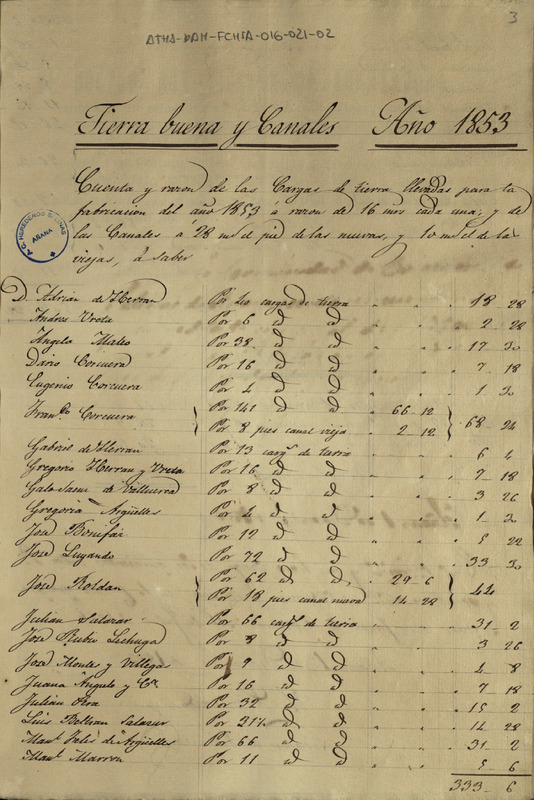 3
ATHA-DAH-FCHSA-016-021-02
Tierra buena y Canales Año 1853
Cuenta y razon de las Cargas de tierra llevadas para la
fabricacion del año 1853 á razon de 16 mrs cada una; y de
las Canales a 28 ms el pie de las nuevas, y 10 ms el de las
viejas, á saber
A.C. HEREDEROS SALINAS AÑANA
D. Adrian de Herran Por 40 cargas de tierra 18 28
Andres Urota Por 6 id id 2 28
Angela Mateo Por 38 id id 17 30
Dario Corcuera Por 16 id id 7 18
Eugenio Corcuera Por 4 id id 1 30
Franco Corcuera Por 141 id id 66 12
Por 8 pies canal vieja 2 12 68 24
Gabriel de Herran Por 13 cargs de tierra 6 4
Gregorio Herran y Urota Por 16 id id 7 18
Galo Saenz de Por 8 id id 3 26
Gregoria Argüelles Por 4 id id 1 30
José Bonifaz Por 12 id id 5 22
José Luyando Por 72 id id 33 30
José Roldan Por 62 id id 29 6
Por 18 pies canal nueva 14 28 44
Julian Salazar Por 66 cargs de tierra 31 2
José Rubio Lechuga Por 8 id id 3 26
José Montes y Villegas Por 9 id id 4 8
Juana Angulo y Ca Por 16 id id 7 18
Julian Por 32 id id 15 2
Luis Beltran Salazar Por id id 14 28
Manl Velez de Argüelles Por 66 id id 31 2
Manl Marron Por 11 id id 5 6
333 6